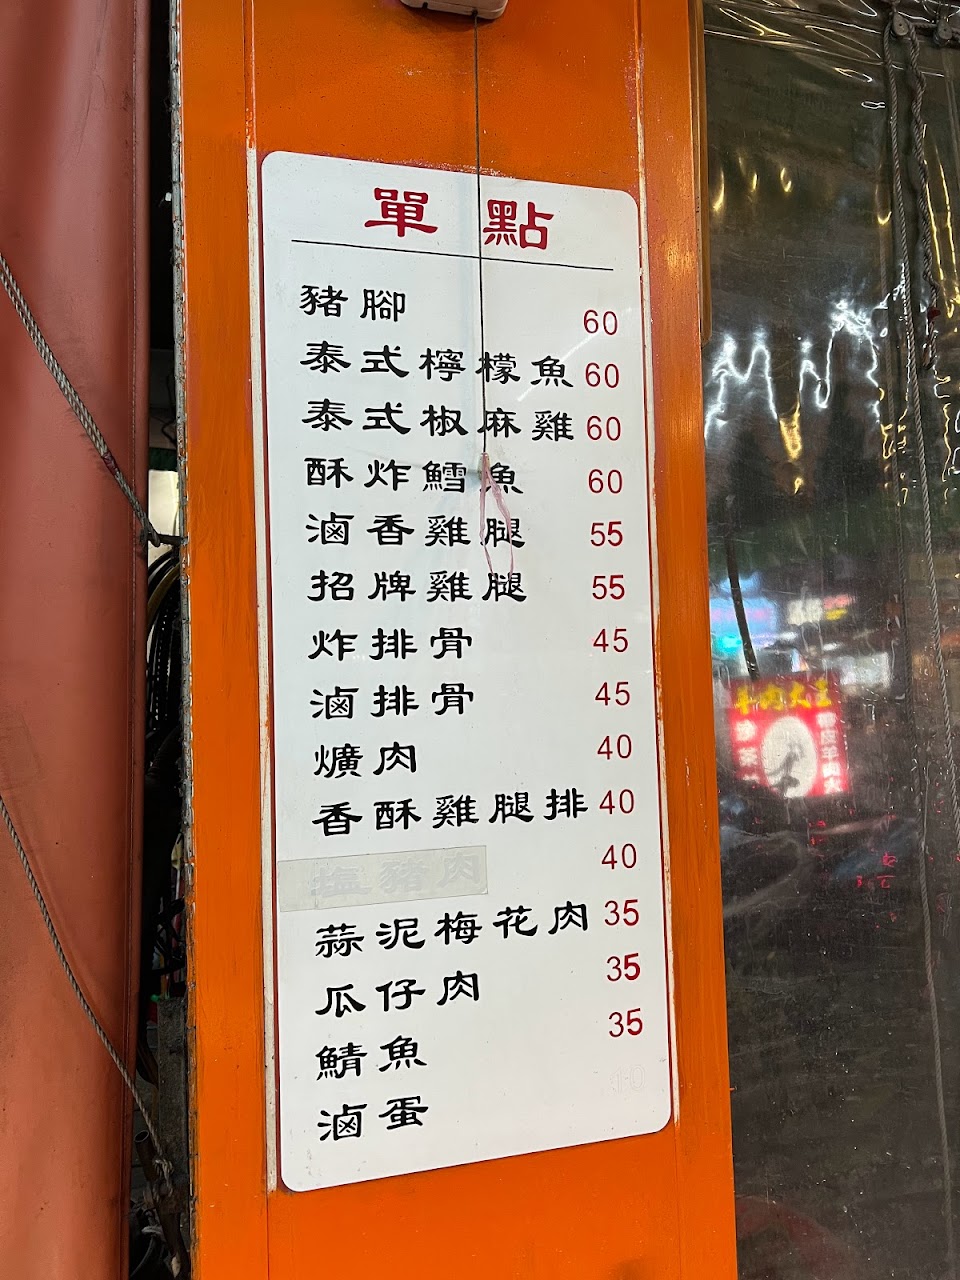 單點
豬腳 60
泰式檸檬魚 60
泰式椒麻雞 60
酥炸鱈魚 60
滷香雞腿 55
招牌雞腿 55
炸排骨 45
滷排骨 45
爌肉 40
香酥雞腿排 40
塩豬肉 40
蒜泥梅花肉 35
瓜仔肉 35
鯖魚 35
滷蛋 10
牛肉大王